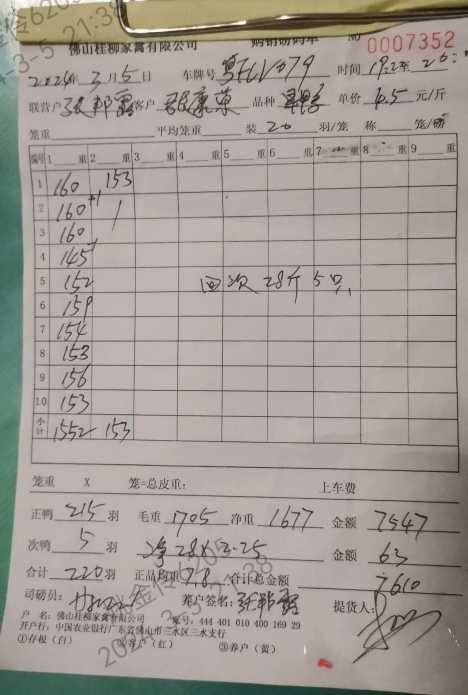 佛山桂柳家禽有限公司 购销磅码单 № 0007352
2024年3月5日 车牌号 079 时间
联营户 客户 品种 单价 4.5 元/斤
笼重 平均笼重 装 20 羽/笼 称 笼/
编号 1 重 2 重 3 重 4 重 5 重 6 重 7 重 8 重 9 重
1 160 153
2 160 +1 1
3 160
4 145 -1
5 152 回次28斤5只
6 159
7 154
8 153
9 156
10 153
小计 1552 153
笼重 X 笼=总皮重: 上车费
正鸭 215 羽 毛重 1705 净重 1677 金额 7547
次鸭 5 羽 净28X2.25 金额 63
合计 220 羽 正品均重 7.8 合计总金额 7610
司磅员: 养户签名: 提货人:
户 名: 佛山桂柳家禽有限公司 账号: 444 401 010 400 169 29
开户行: 中国农业银行广东省佛山市三水区三水支行
①存根(白) ②客户(红) ③养户(黄)